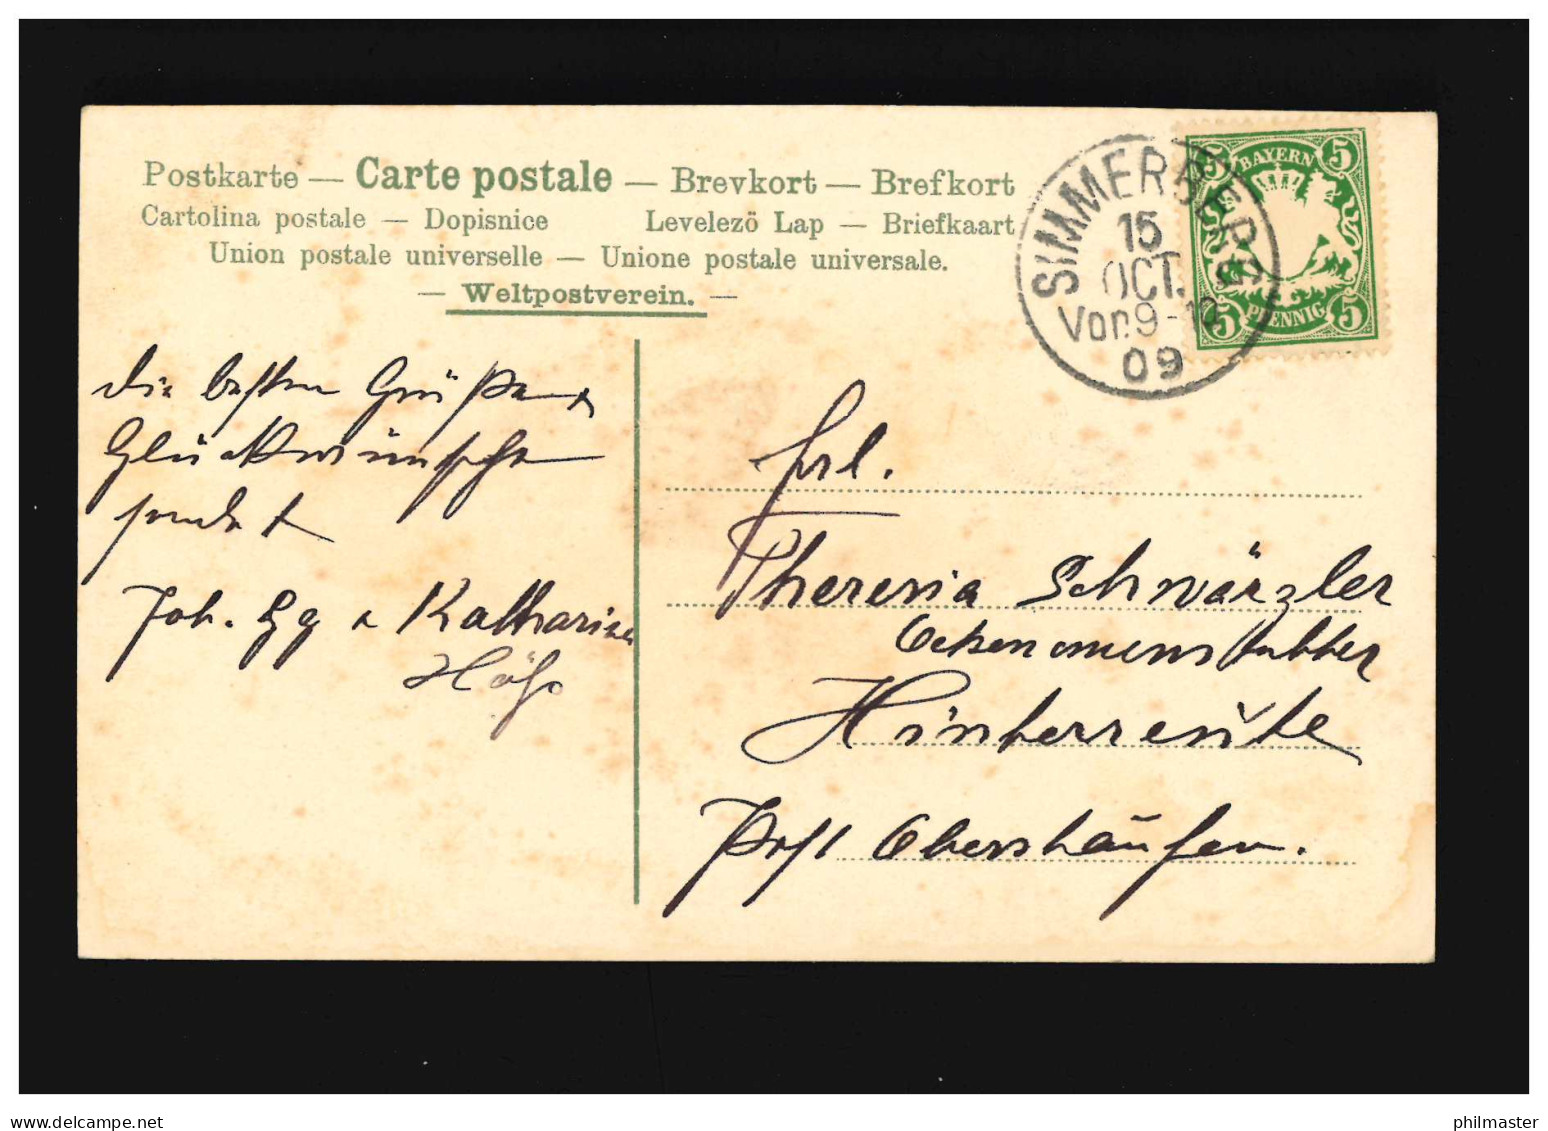 Postkarte — Carte postale — Brevkort — Brefkort
Cartolina postale — Dopisnice Levelező Lap — Briefkaart
Union postale universelle — Unione postale universale.
— Weltpostverein. —
SIMMERBERG
15
OCT.
Vor.9-10
09
5 BAYERN 5
5 PFENNIG 5
die besten Grüße u
Glückwünsche
sendet
Joh. Gg u Katharina
Frl.
Theresia Schwärzler
Oekonomenstochter
Hinterreute
Post Oberstaufen.
delcampe.net
philmaster